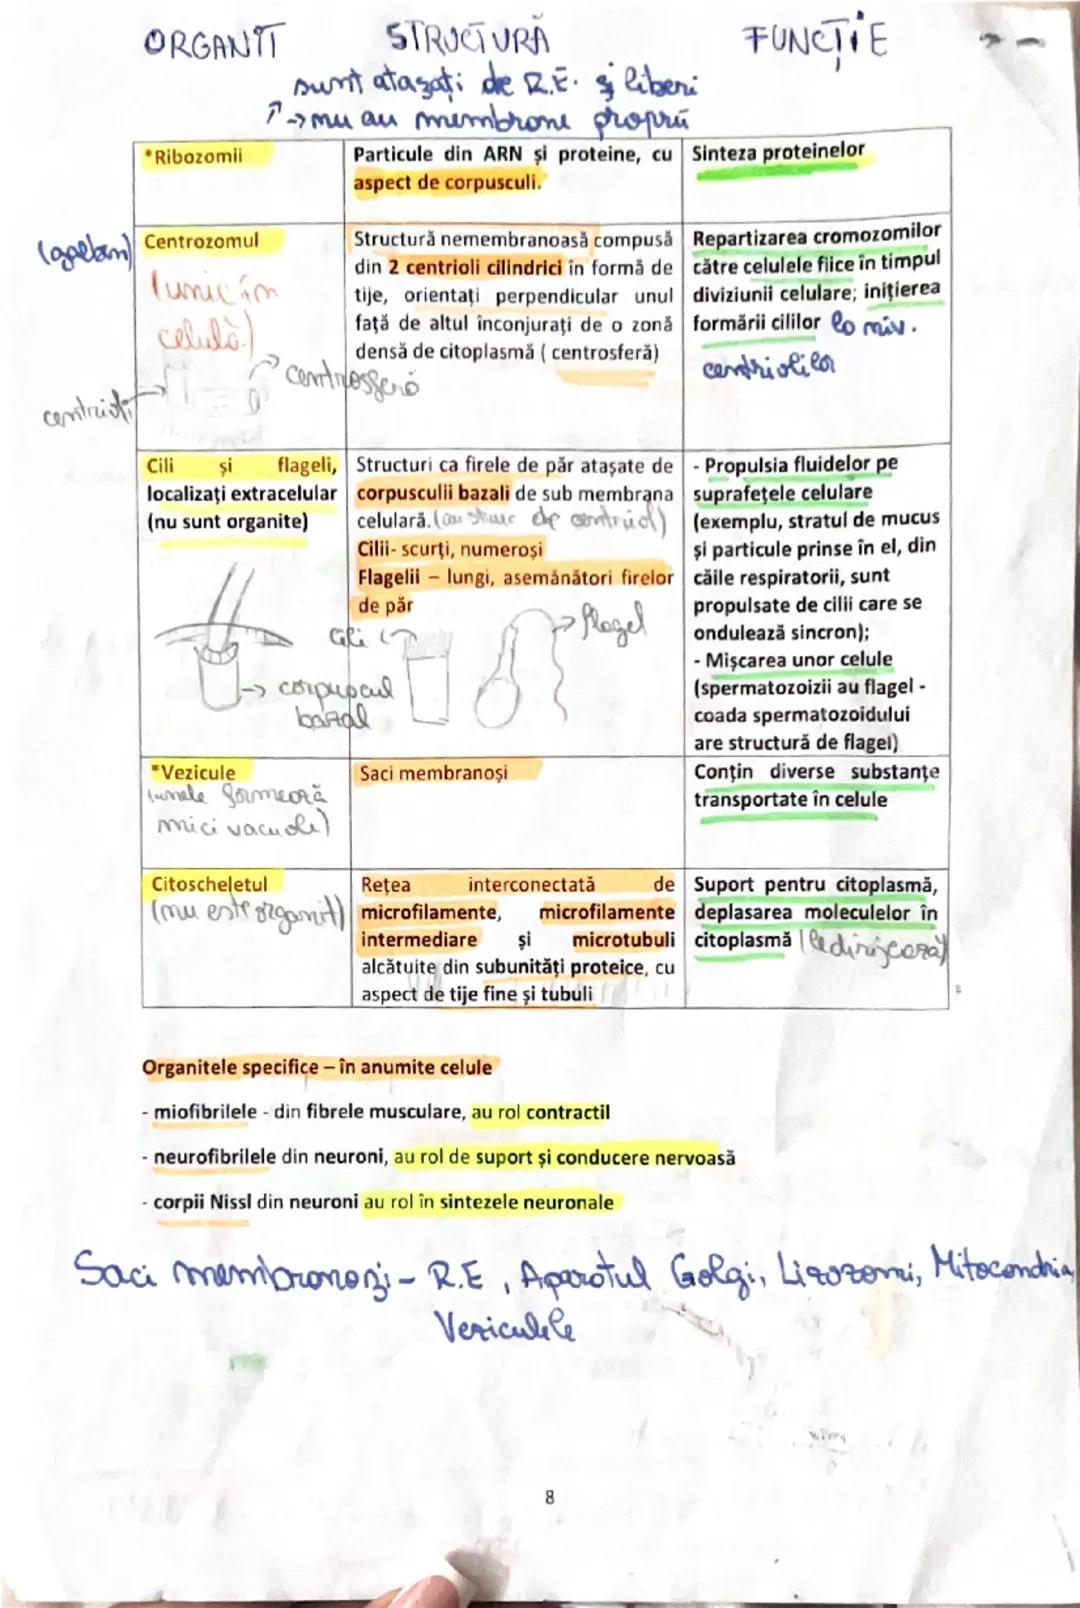 ORGANIT STRUCTURĂ FUNCȚIE
sunt atașați de R.E. și liberi
→ nu au membrane proprii
*Ribozomii
Particule din ARN și proteine, cu
aspect de corpusculi.
Sinteza proteinelor
Centrozomul
(unic în
celulă)
centrioli
centrosferă
Structură nemembranoasă compusă
din 2 centrioli cilindrici în formă de
tije, orientați perpendicular unul
față de altul înconjurați de o zonă
densă de citoplasmă ( centrosferă)
Repartizarea cromozomilor
către celulele fiice în timpul
diviziunii celulare; inițierea
formării cililor la niv.
centriolilor
Cili și flageli,
localizați extracelular
(nu sunt organite)
Structuri ca firele de păr atașate de
corpusculii bazali de sub membrana
celulară. (au struc de centriol)
Cilii- scurți, numeroși
Flagelii – lungi, asemănători firelor
de păr
cili
→ flagel
→ corpuscul
bazal
- Propulsia fluidelor pe
suprafețele celulare
(exemplu, stratul de mucus
și particule prinse în el, din
căile respiratorii, sunt
propulsate de cilii care se
ondulează sincron);
- Mișcarea unor celule
(spermatozoizii au flagel -
coada spermatozoidului
are structură de flagel)
*Vezicule
(unele formează
mici vacuole)
Saci membranoși
Conțin diverse substanțe
transportate în celule
Citoscheletul
(nu este organit)
Rețea interconectată de
microfilamente, microfilamente
intermediare și microtubuli
alcătuite din subunități proteice, cu
aspect de tije fine și tubuli
Suport pentru citoplasmă,
deplasarea moleculelor în
citoplasmă
Organitele specifice – în anumite celule
- miofibrilele - din fibrele musculare, au rol contractil
- neurofibrilele din neuroni, au rol de suport și conducere nervoasă
- corpii Nissl din neuroni au rol în sintezele neuronale
Saci membranoși - R.E, Aparatul Golgi, Lizozomi, Mitocondria,
Veziculele
8